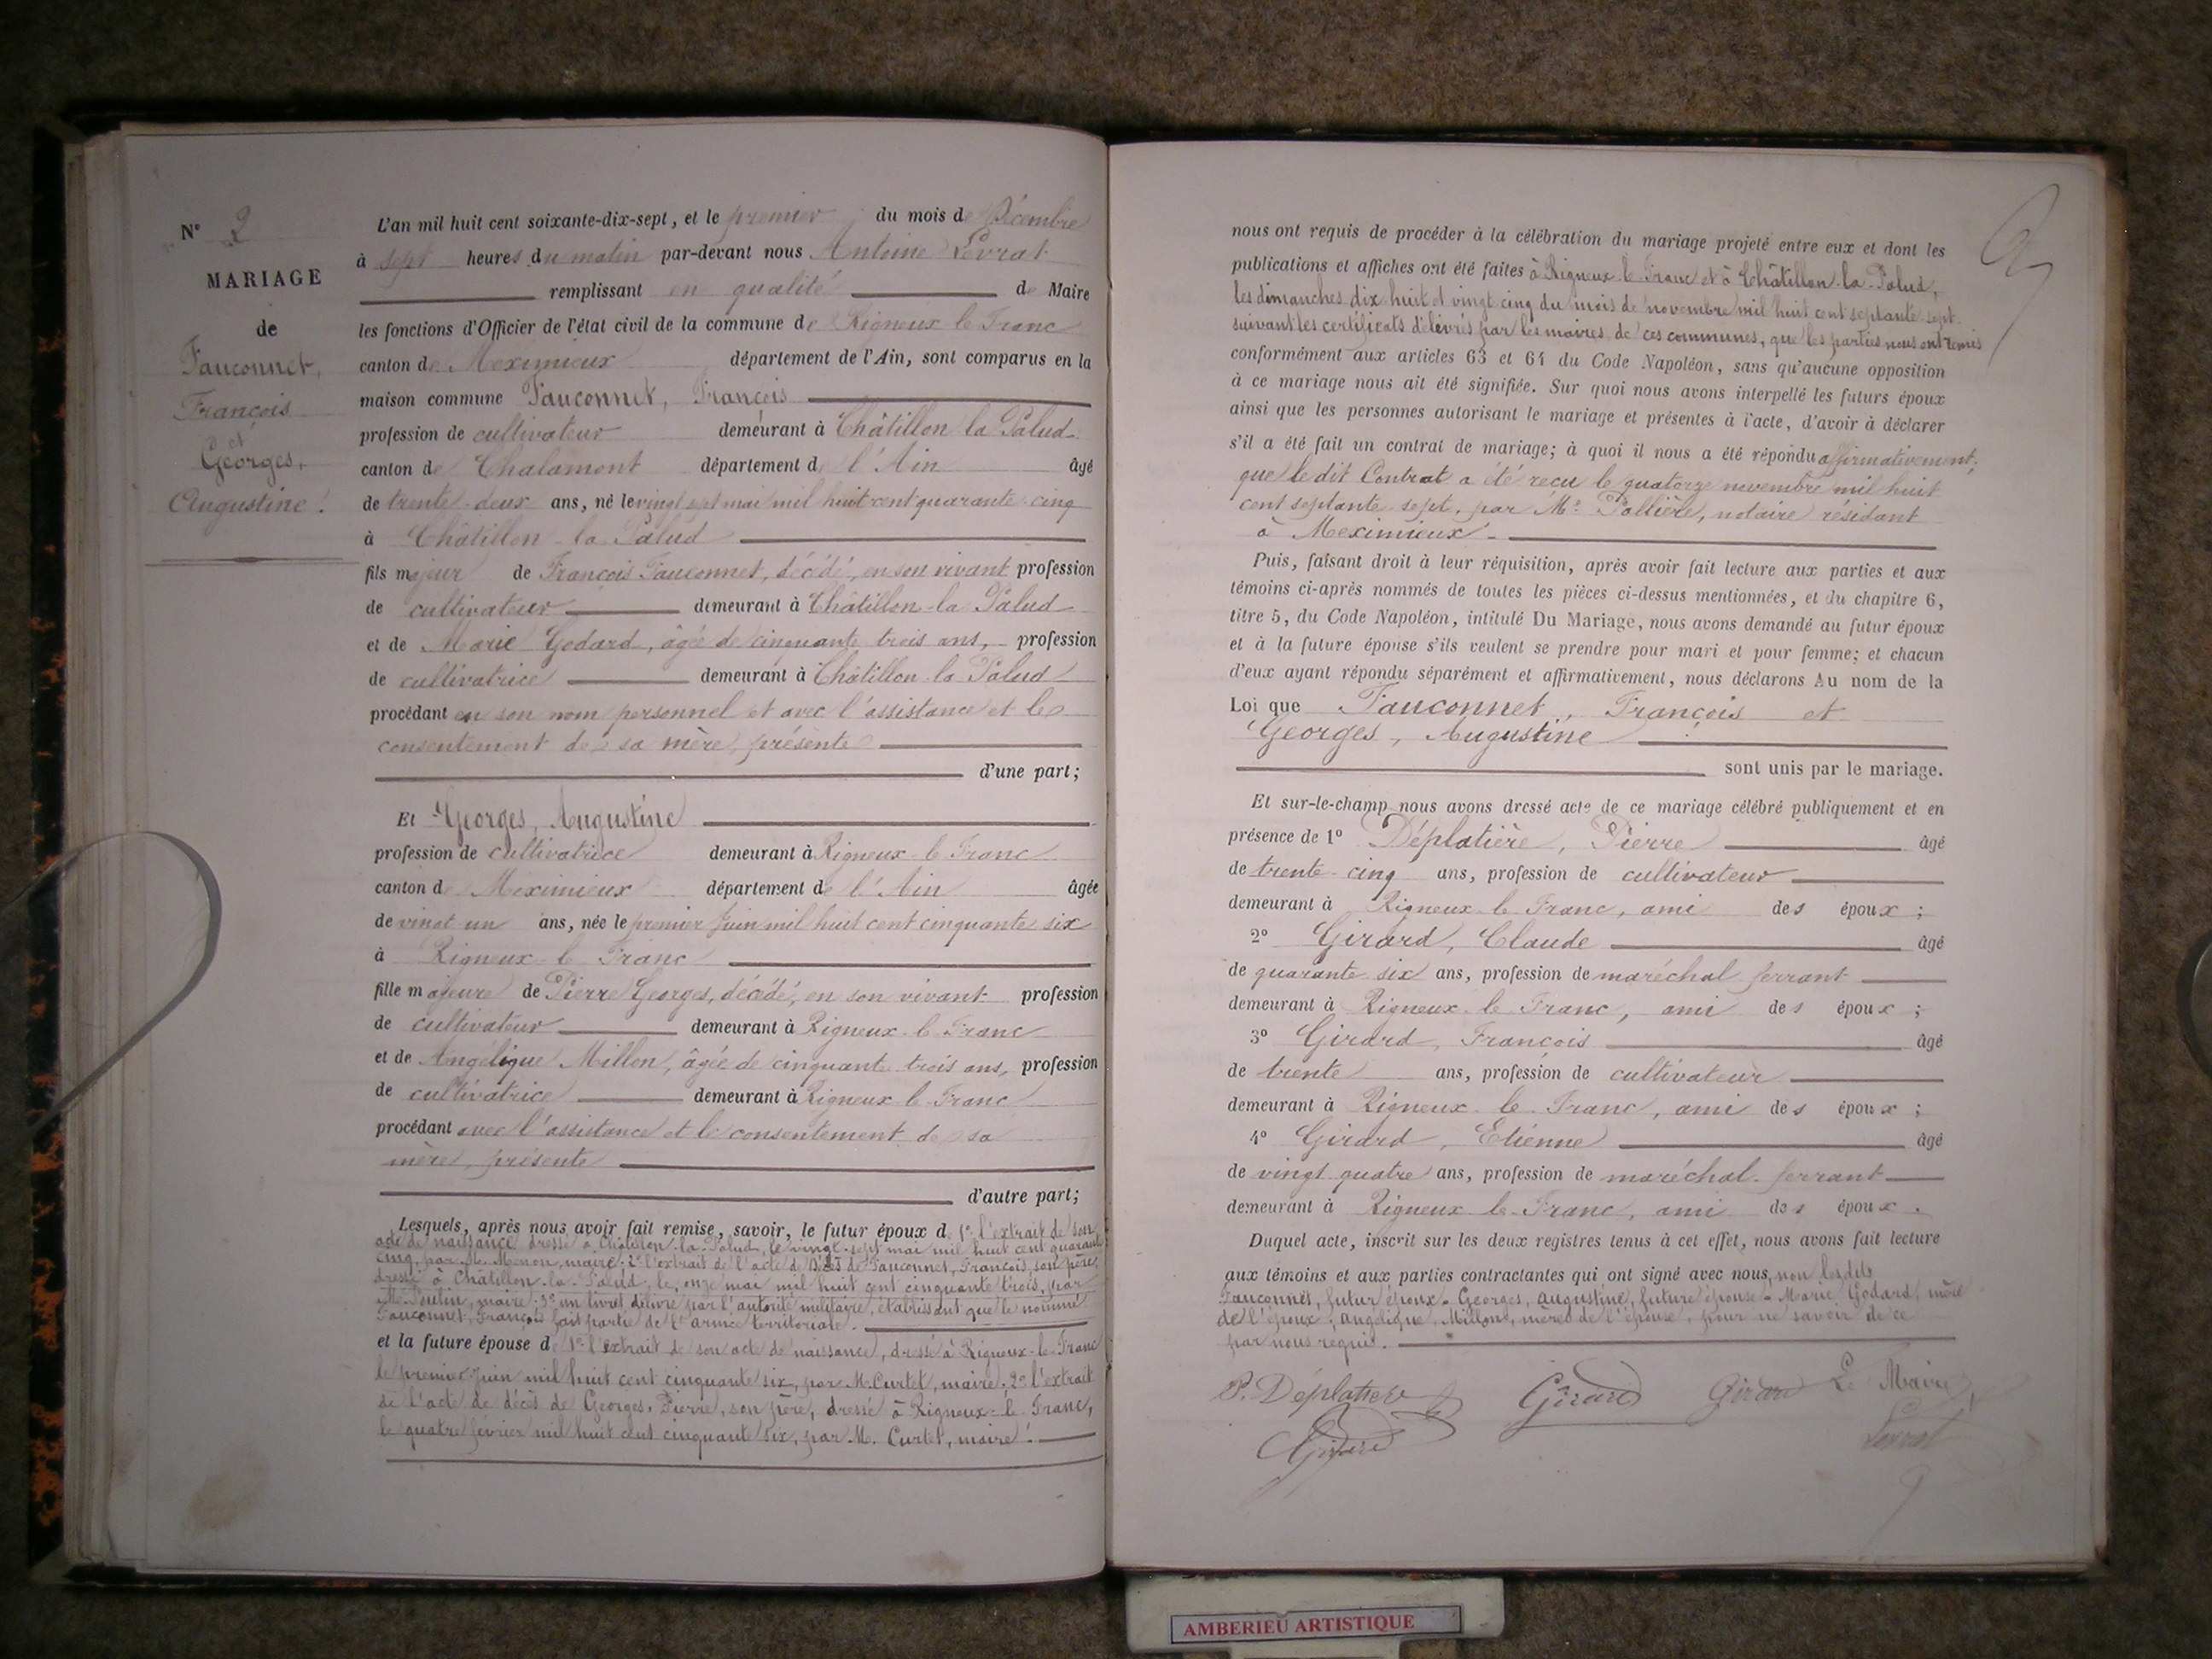 N° 2
MARIAGE
de
Fauconnet,
François
et
Georges,
Augustine.
L'an mil huit cent soixante-dix-sept, et le premier du mois de Décembre
à sept heures du matin par-devant nous Antoine Levrat
remplissant en qualité de Maire
les fonctions d'Officier de l'état civil de la commune de Rigneux le Franc
canton de Meximieux département de l'Ain, sont comparus en la
maison commune Fauconnet, François
profession de cultivateur demeurant à Châtillon la Palud
canton de Chalamont département de l'Ain âgé
de trente-deux ans, né le vingt sept mai mil huit cent quarante-cinq
à Châtillon-la Palud
fils majeur de François Fauconnet, décédé, en son vivant profession
de cultivateur demeurant à Châtillon-la Palud
et de Marie Godard, âgée de cinquante trois ans, profession
de cultivatrice demeurant à Châtillon-la Palud
procédant en son nom personnel et avec l'assistance et le
consentement de sa mère, présente
d'une part;
Et Georges, Augustine
profession de cultivatrice demeurant à Rigneux-le Franc
canton de Meximieux département de l'Ain âgée
de vingt un ans, née le premier juin mil huit cent cinquante six
à Rigneux-le Franc
fille majeure de Pierre Georges, décédé, en son vivant profession
de cultivateur demeurant à Rigneux-le Franc
et de Angélique Millon, âgée de cinquante trois ans, profession
de cultivatrice demeurant à Rigneux le Franc
procédant avec l'assistance et le consentement de sa
mère, présente
d'autre part;
Lesquels, après nous avoir fait remise, savoir, le futur époux de 1° l'extrait de son
acte de naissance dressé à Châtillon-la-Palud, le vingt-sept mai mil huit cent quarante
cinq, par M. Monon, maire; 2° l'extrait de l'acte de décès de Fauconnet, François, son père,
dressé à Châtillon-la-Palud, le onze mai mil huit cent cinquante trois, par
M. maire; 3° un livret délivré par l'autorité militaire, établissant que le nommé
Fauconnet, François fait partie de l'armée territoriale.
et la future épouse de 1° l'extrait de son acte de naissance, dressé à Rigneux-le-Franc
le premier juin mil huit cent cinquante six, par M. Curtet, maire; 2° l'extrait
de l'acte de décès de Georges, Pierre, son père, dressé à Rigneux-le-Franc,
le quatre février mil huit cent cinquante six, par M. Curtet, maire.
nous ont requis de procéder à la célébration du mariage projeté entre eux et dont les
publications et affiches ont été faites à Rigneux-le Franc et à Châtillon-la-Palud,
les dimanches dix-huit et vingt cinq du mois de novembre mil huit cent septante-sept
suivant les certificats délivrés par les maires de ces communes, que les parties nous ont remis
conformément aux articles 63 et 64 du Code Napoléon, sans qu'aucune opposition
à ce mariage nous ait été signifiée. Sur quoi nous avons interpellé les futurs époux
ainsi que les personnes autorisant le mariage et présentes à l'acte, d'avoir à déclarer
s'il a été fait un contrat de mariage; à quoi il nous a été répondu affirmativement;
que le dit Contrat a été reçu le quatorze novembre mil huit
cent septante-sept, par Me Pallière, notaire résidant
à Meximieux.
Puis, faisant droit à leur réquisition, après avoir fait lecture aux parties et aux
témoins ci-après nommés de toutes les pièces ci-dessus mentionnées, et du chapitre 6,
titre 5, du Code Napoléon, intitulé Du Mariage, nous avons demandé au futur époux
et à la future épouse s'ils veulent se prendre pour mari et pour femme; et chacun
d'eux ayant répondu séparément et affirmativement, nous déclarons Au nom de la
Loi que Fauconnet, François et
Georges, Augustine
sont unis par le mariage.
Et sur-le-champ nous avons dressé acte de ce mariage célébré publiquement et en
présence de 1° Déplatière, Pierre âgé
de trente-cinq ans, profession de cultivateur
demeurant à Rigneux le Franc, ami des époux;
2° Girard, Claude âgé
de quarante six ans, profession de maréchal ferrant
demeurant à Rigneux le Franc, ami des époux;
3° Girard, François âgé
de trente ans, profession de cultivateur
demeurant à Rigneux-le Franc, ami des époux;
4° Girard, Etienne âgé
de vingt quatre ans, profession de maréchal-ferrant
demeurant à Rigneux le Franc, ami des époux.
Duquel acte, inscrit sur les deux registres tenus à cet effet, nous avons fait lecture
aux témoins et aux parties contractantes qui ont signé avec nous, non lesdits
Fauconnet, futur époux - Georges, Augustine, future épouse - Marie Godard, mère
de l'époux; Angélique Millon, mère de l'épouse, pour ne savoir de ce
par nous requis.
P. Déplatière Girard Girard Le Maire
Girard Levrat
AMBERIEU ARTISTIQUE